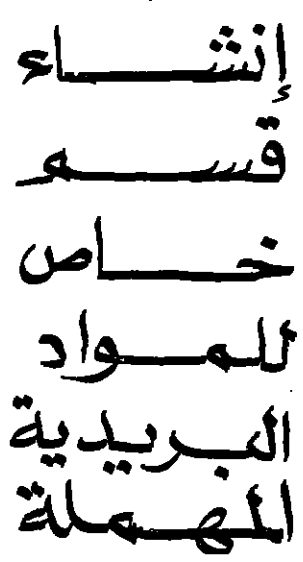 إنشاء
قسم
خاص
للمواد
البريدية
المهملة